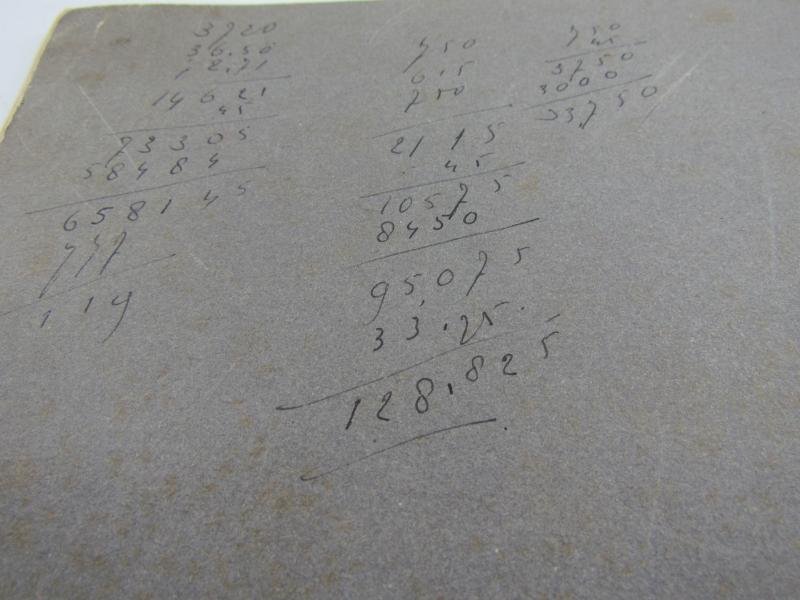 3720
36.50
12.71
14621
45
73305
58484
658145
747
119
750
615
750
2115
45
10575
8450
95,075
33.25
128.825
750
45
3750
3000
33,750